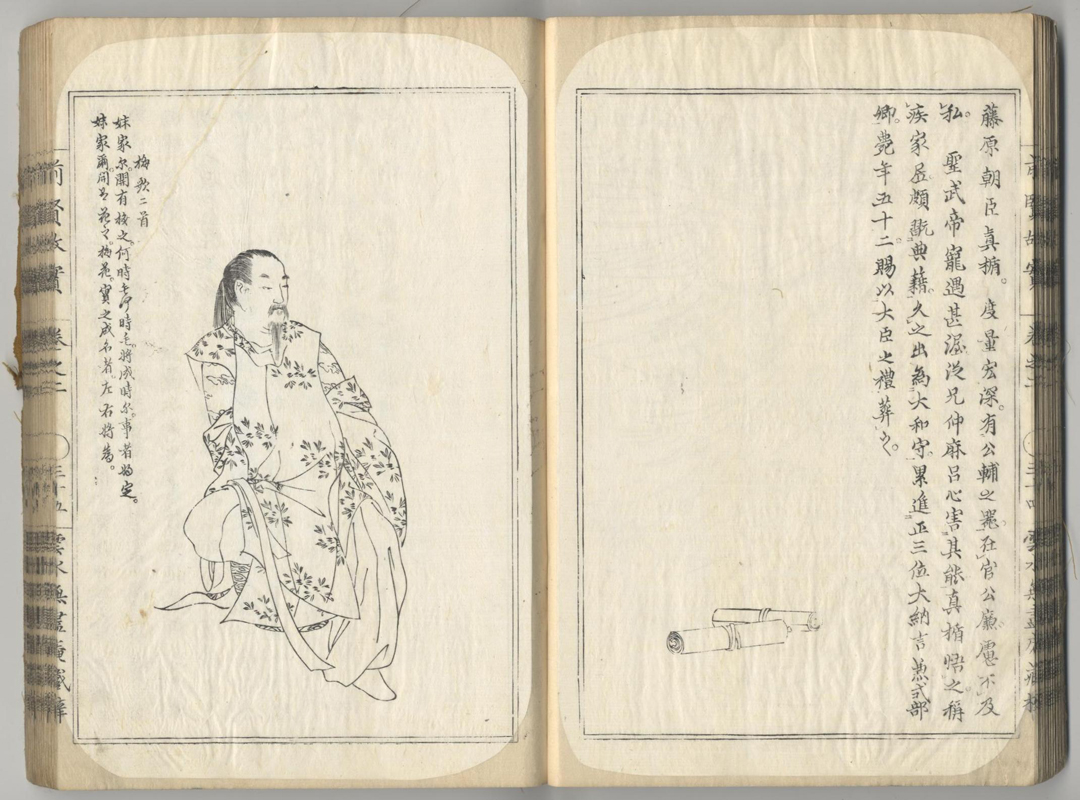 前賢故實 卷之二 三十四 雲水無盡庵藏梓
藤原朝臣真楯。度量宏深。有公輔之器。在官公廉。慮不及
私。 聖武帝寵遇甚渥。従兄仲麻呂心害其能。真楯悟之。稱
疾家居。頗翫典籍。久之出為大和守。累進正三位大納言兼式部
卿。薨年五十二。賜以大臣之禮葬之。
梅歌二首
妹家尓。開有梅之。何時毛。何時毛。将成時尓。事者将定。
妹家爾。開有花之。梅花。實之成名者。左右将為。
前賢故實 卷之二 三十五 雲水無盡庵藏梓